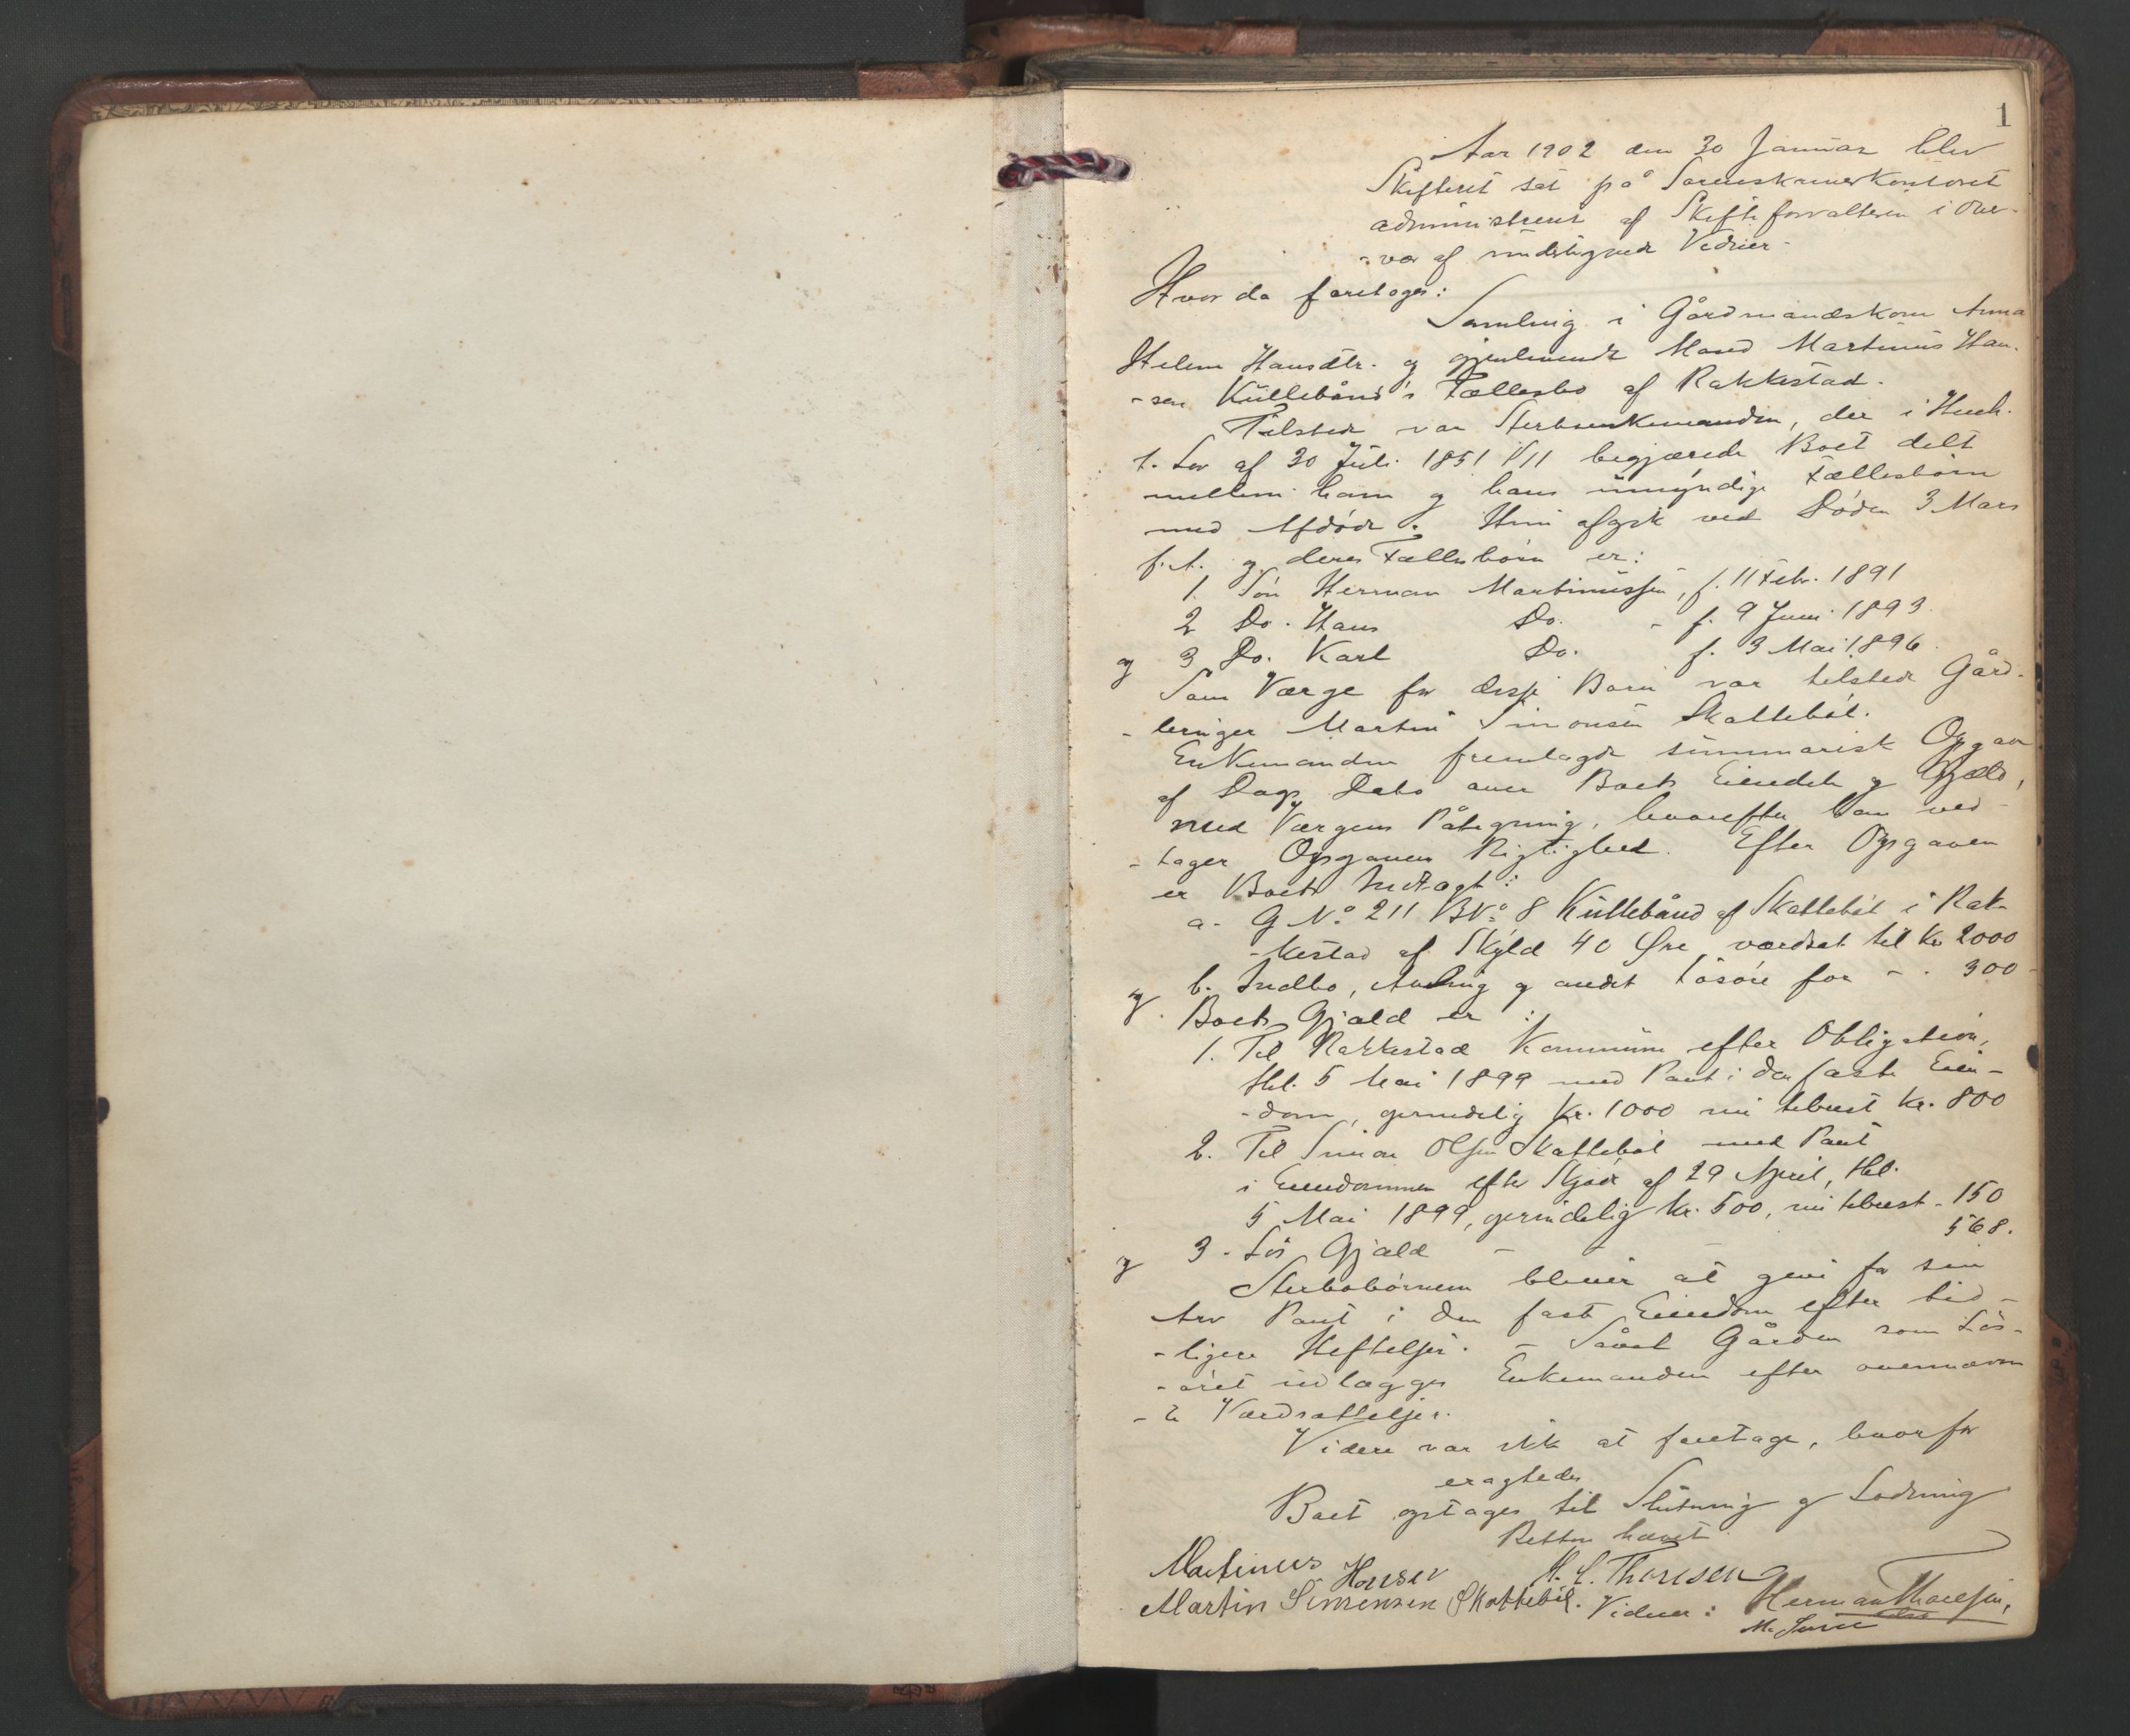 1
Aar 1902 den 30 Januar blev
Skifteret sat på Sorenskriverkontoret
administreret af Skifteforvalteren i Over-
-vær af undertegnede Vidner.
Hvor da foretoges:
Samling i Gårdmandskone Anna
Helene Hansdtr. og gjenlevende Mand Martinus Han-
-sen Kullebånd's Fællesbo af Rakkestad.
Tilstede var Sterbuenkemanden, der i Henh.
t. Lov af 30 Juli 1851 § 11 begjærede Boet delt
mellem ham og hans umyndige Fællesbörn
med Afdøde. Hun afgik ved Døden 3 Mars
f. A. og deres Fællesbörn er:
1. Sön Herman Martinussen, f. 11 Febr. 1891
2 Do. Hans Do. - f. 9 Juni 1893.
og 3 Do. Karl Do. f. 3 Mai 1896.
Som Værge for disse Børn var tilstede Gård-
-bruger Martin Simonsen Skattebøl.
Enkemanden fremlagde summarisk Opgave
af Dags Dato over Boets Eiendele og Gjæld,
med Værgens Påtegning, hvorefter han ved-
-tager Opgavens Rigtighed. Efter Opgaven
er Boets Indtægt:
a. G No. 211 BNo. 8 Kullebånd af Skattebøl i Rak-
-kestad af Skyld 40 Øre, værdsat til Kr 2000
og b. Indbo, Avling og andet Lösöre for - . 300 -
Boets Gjæld er:
1. Til Rakkestad Kommune efter Obligation,
thl. 5 Mai 1899 med Pant i den faste Eien-
-dom, oprindelig Kr. 1000 nu tilrest Kr. 800
2. Til Simon Olsen Skattebøl med Pant
i Eiendommen efter Skjøde af 29 April, thl.
5 Mai 1899, oprindelig Kr. 500, nu tilrest - 150
og 3. Lös Gjæld - - 568.
Sterbobörnene bliver at give for sin
Arv Pant i den faste Eiendom efter tid-
-ligere Heftelser. - Såvel Gården som Lös-
-öret indlægges Enkemanden efter ovennævn
-te Værdsættelser.
Videre var ikke at foretage, hvorfor
eragtedes
Boet optages til Slutning og Lodning
Retten hævet.
Martinus Hansen H. C. Thoresen
Martin Simensen Skattebøl. Vidner: Herman Thoresen,
M.